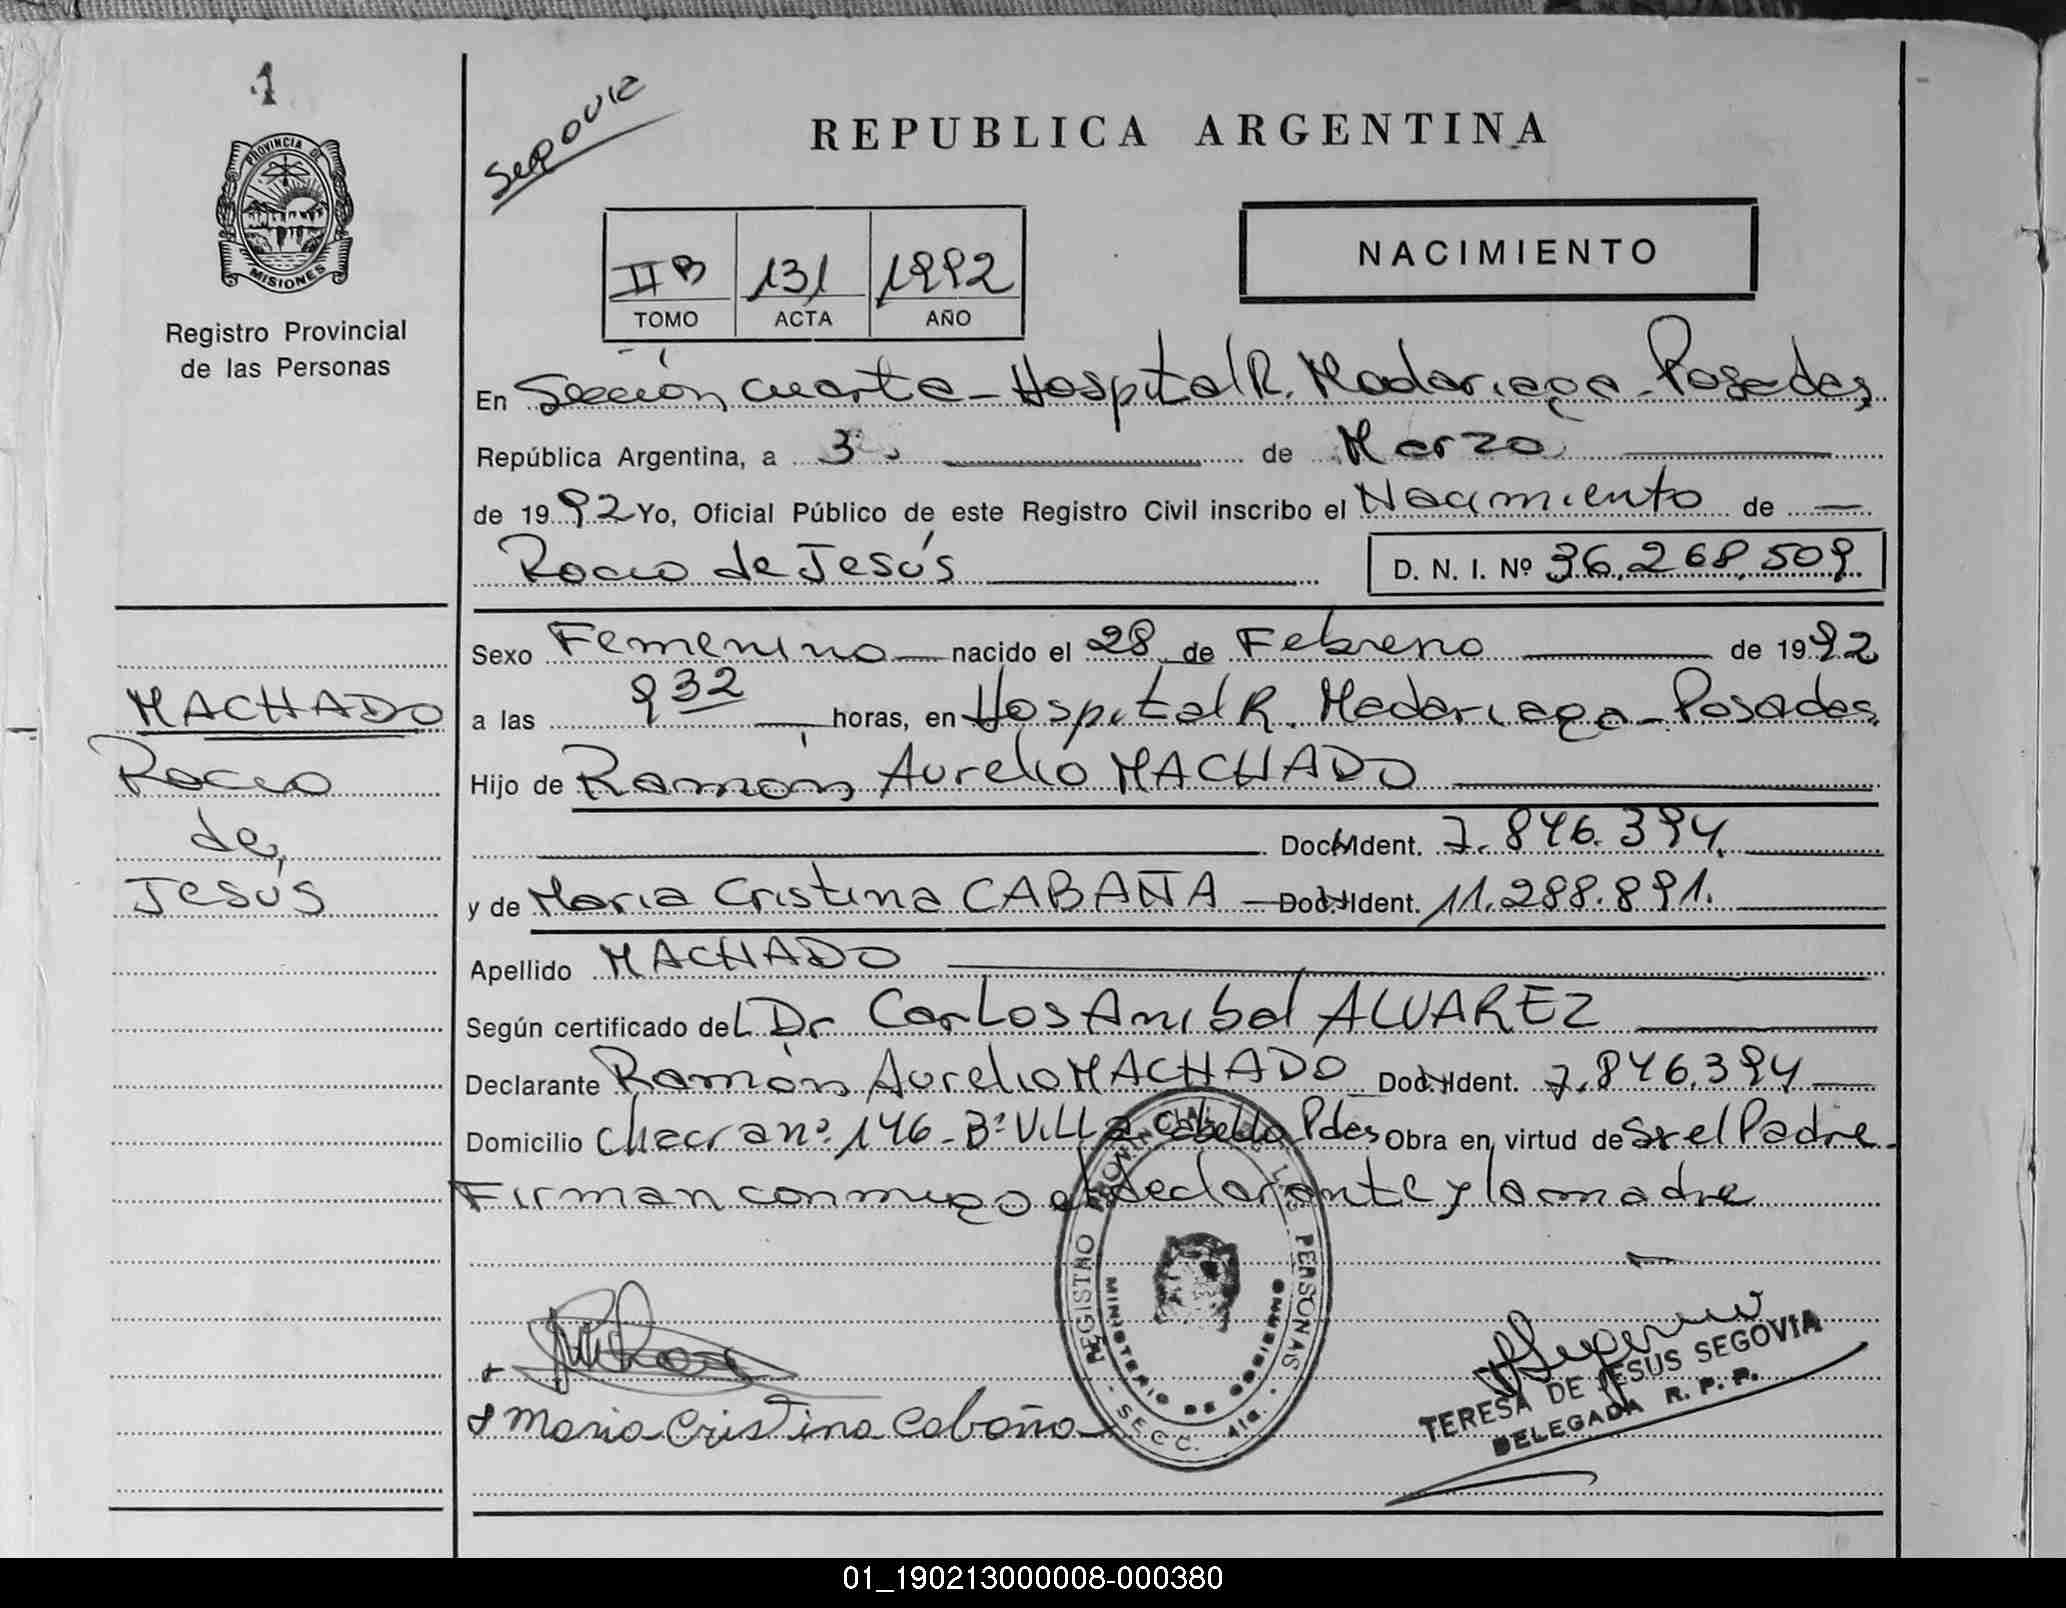 1
PROVINCIA DE
MISIONES
Registro Provincial
de las Personas
REPUBLICA ARGENTINA
NACIMIENTO
II B 131 1992
TOMO ACTA AÑO
En Sección cuarta - Hospital R. Madariaga - Posadas,
República Argentina, a 3 de Marzo
de 1992 Yo, Oficial Público de este Registro Civil inscribo el Nacimiento de —
Rocio de Jesús D. N. I. Nº 36.268.509
Sexo Femenino — nacido el 28 de Febrero de 1992
a las 9 32 horas, en Hospital R. Madariaga - Posadas.
MACHADO
Rocio
de
Jesús
Hijo de Ramón Aurelio MACHADO
Doc. Ident. 7.846.394.
y de Maria Cristina CABAÑA — Doc. Ident. 11.288.891.
Apellido MACHADO
Según certificado del Dr Carlos Anibal ALVAREZ
Declarante Ramón Aurelio MACHADO Doc. Ident. 7.846.394
Domicilio Chacra nº 146 - Bº Villa Cabello Pdas Obra en virtud de Ser el Padre.
Firman conmigo el declarante y la madre
REGISTRO PROVINCIAL DE LAS PERSONAS
MINISTERIO DE GOBIERNO
- SECC. 4ta. -
Maria Cristina Cabaña
TERESA DE JESUS SEGOVIA
DELEGADA R. P. P.
01_190213000008-000380